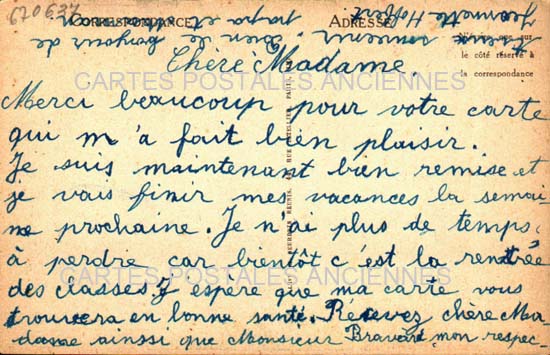 670637
CORRESPONDANCE
ADRESSE
le côté réservé à
la correspondance
CARTES POSTALES ANCIENNES
CARTES POSTALES ANCIENNES
Chère Madame.
Merci beaucoup pour votre carte
qui m'a fait bien plaisir.
Je suis maintenant bien remise et
je vais finir mes vacances la semai
ne prochaine. Je n'ai plus de temps
à perdre car bientôt c'est la rentrée
des classes J espère que ma carte vous
trouvera en bonne santé. Recevez chère Ma-
dame ainssi que Monsieur Bravard mon respec-
bonjour de
papa et
Jeannette